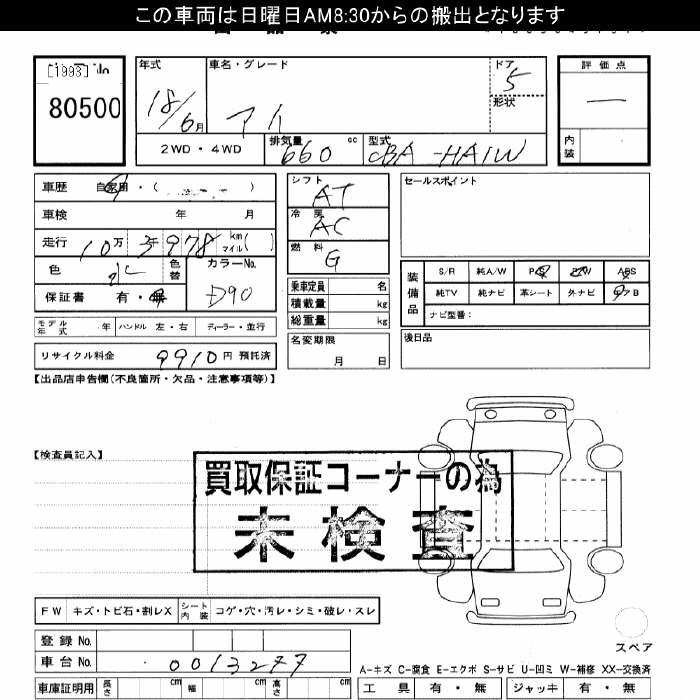 この車両は日曜日AM8:30からの搬出となります
[1993] No
80500
年式 車名・グレード ドア 5 形状
18/6月 アイ
2WD・4WD 排気量 660 cc 型式 CBA-HA1W
評価点 ―
内装
車歴 自家用・( )
車検 年 月
走行 10万3千978 km マイル( )
色 水 色替 カラーNo. D90
保証書 有・無
モデル年式 年 ハンドル 左・右 ディーラー・並行
リサイクル料金 9910円 預託済
シフト AT
冷房 AC
燃料 G
乗車定員 名
積載量 kg
総重量 kg
名変期限 月 日
セールスポイント
装備品 S/R 純A/W P/S P/W ABS
純TV 純ナビ 革シート 外ナビ エアB
ナビ型番:
後日品
【出品店申告欄(不良箇所・欠品・注意事項等)】
【検査員記入】
買取保証コーナーの為
未検査
FW キズ・トビ石・割レX シート内装 コゲ・穴・汚レ・シミ・破レ・スレ
登録No.
車台No. 0013277
スペア
A-キズ C-腐食 E-エクボ S-サビ U-凹ミ W-補修 XX-交換済
車庫証明用 長さ cm 幅 cm 高さ cm 工具 有・無 ジャッキ 有・無